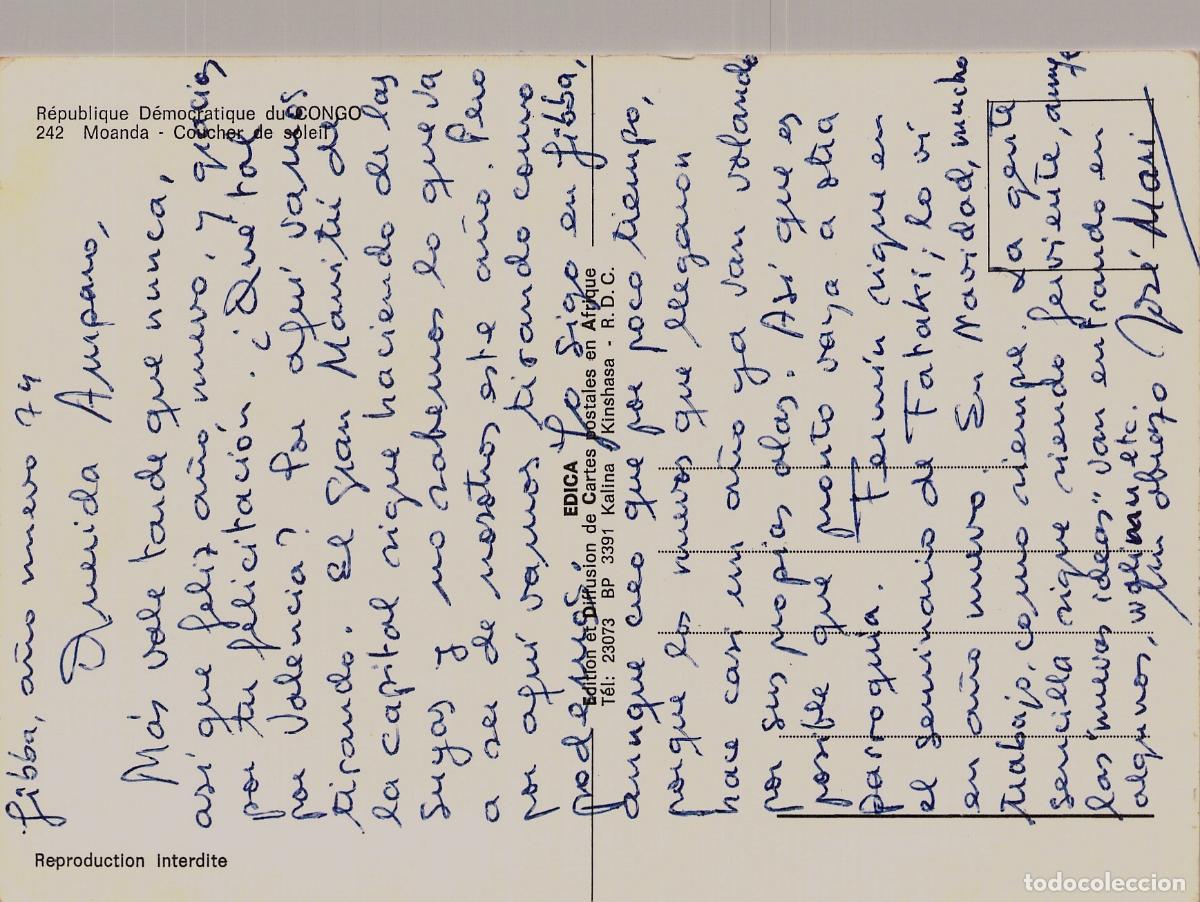 République Démocratique du CONGO
242 Moanda - Coucher de soleil
Jibba, año nuevo 74
Querida Amparo,
Más vale tarde que nunca,
así que feliz año nuevo, y gracias
por tu felicitación. ¿Qué tal
por Valencia? Por aquí vamos
tirando. El gran Manitú de
la capital sigue haciendo de las
suyas y no sabemos lo que va
a ser de nosotros este año. Pero
por aquí vamos tirando como
podemos. Yo sigo en Jibba,
aunque creo que por poco tiempo,
porque los nuevos que llegaron
hace casi un año ya van volando
por sus propias alas. Así que es
posible que pronto vaya a otra
parroquia. Fermín sigue en
el seminario de Fataki; lo vi
en año nuevo. En Navidad, mucho
trabajo, como siempre. La gente
sencilla sigue siendo ferviente, aunque
las "nuevas ideas" van entrando en
algunos, etc.
Un abrazo José Mari
EDICA
Edition et Diffusion de Cartes postales en Afrique
Tél: 23073 BP 3391 Kalina - Kinshasa - R. D. C.
Reproduction Interdite
todocoleccion